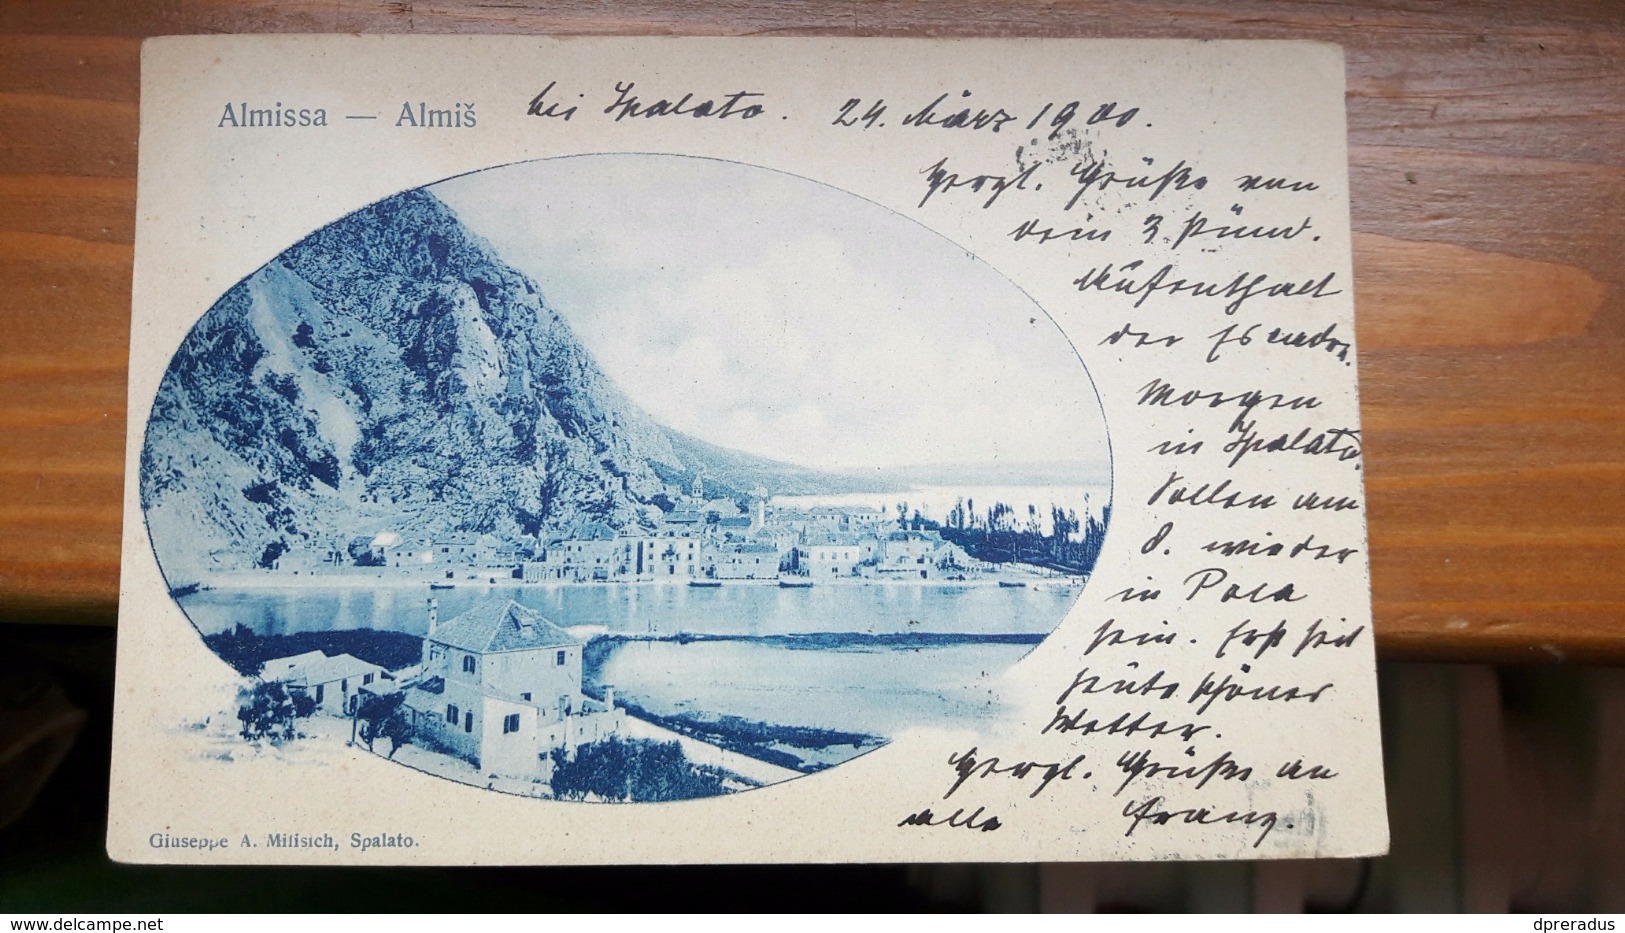 Almissa — Almiš bei Spalato. 24. März 1900.
Herzl. Grüße von
dem 3 stünd.
Aufenthalt
der Escadre.
Morgen
in Spalato.
Sollen am
8. wieder
in Pola
sein. Erst seit
heute schönes
Wetter.
Herzl. Grüße an
alle Franz.
Giuseppe A. Milisich, Spalato.
delcampe.net
dpreradus